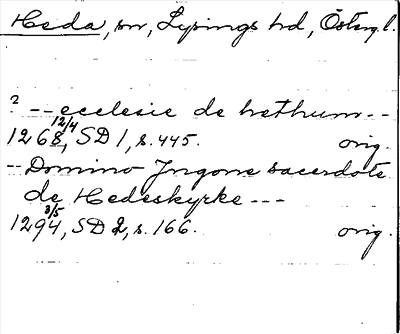 Heda, sn, Lysings hd, Österg.l.
? -- ecclesie de hethum --
1268 12/4, SD 1, s. 445. orig.
-- Domino Ingone sacerdote
de Hedeskyrke ---
1294 3/5, SD 2, s. 166. orig.